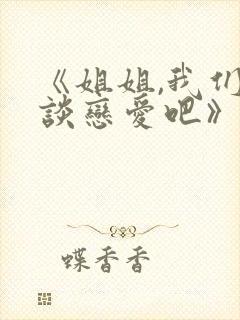 《姐姐,我们
談戀愛吧》
蝶香香